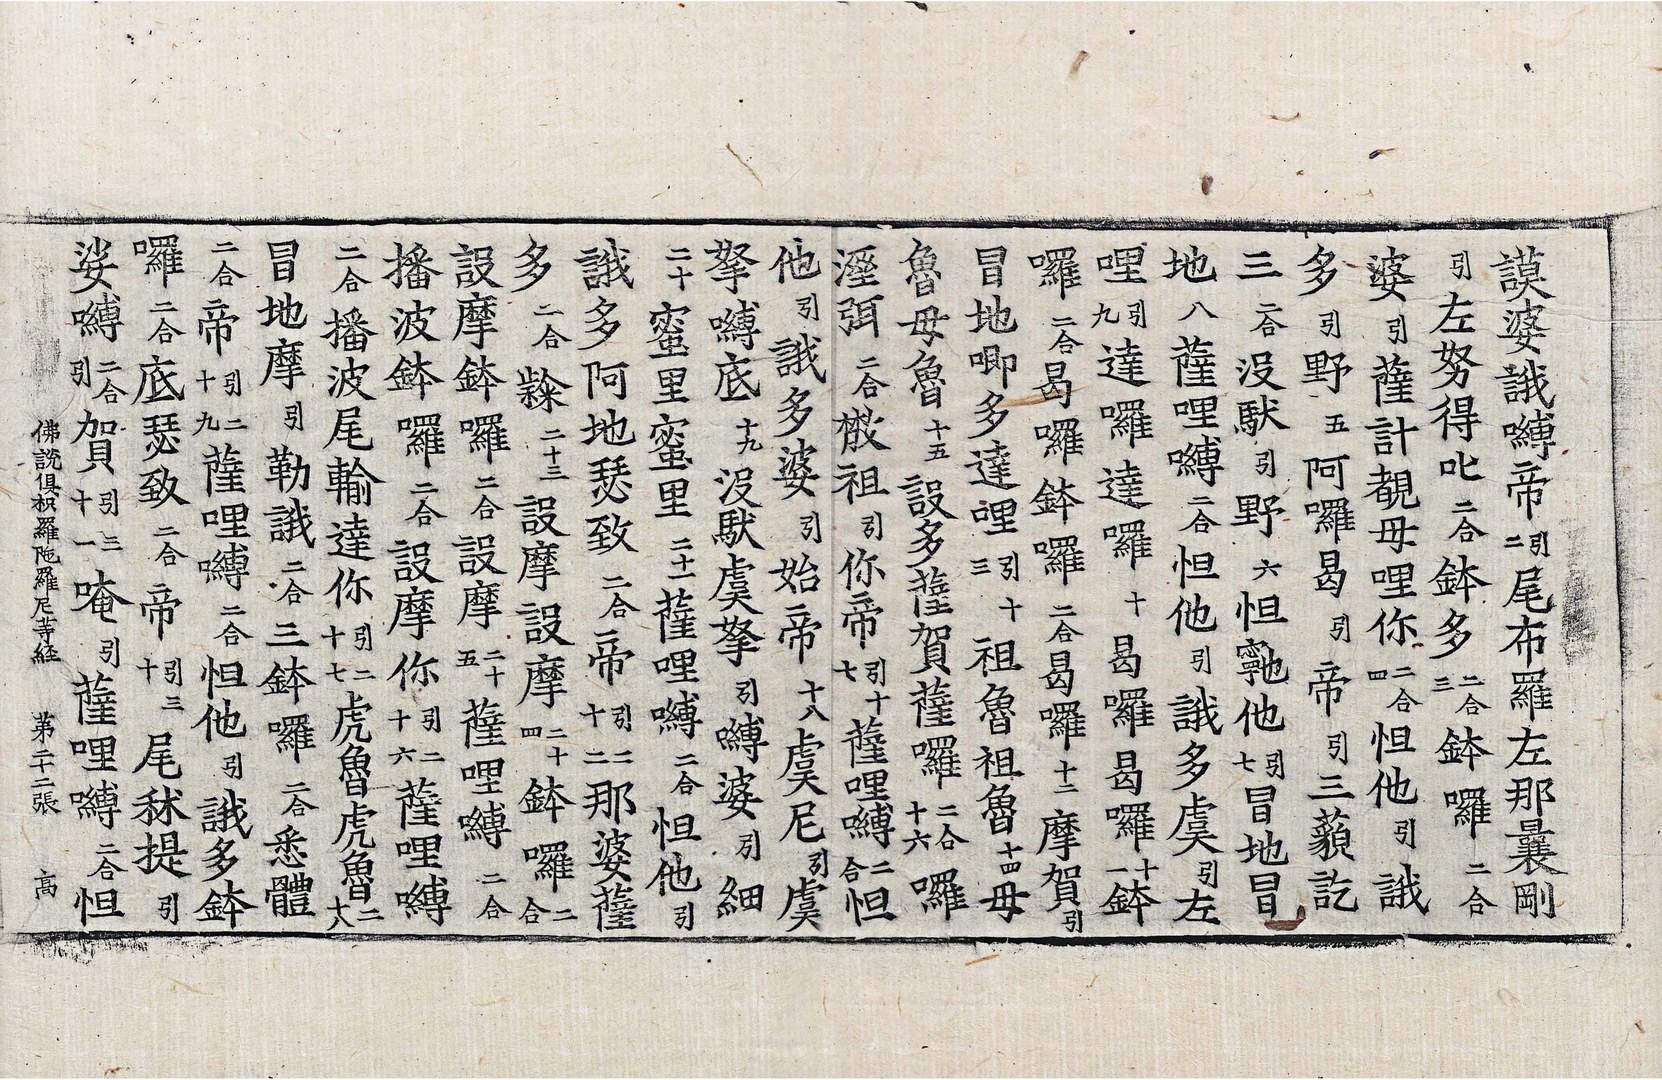 謨婆誐嚩帝引二尾布羅左那曩剛
引左努得叱二合鉢多二合三鉢囉二合
婆引薩計覩毋哩你二合四怛他引誐
多引野五阿囉曷引帝引三藐訖
三二合沒馱引野六怛𡫸他引七冒地冒
地八薩哩嚩二合怛他引誐多虞引左
哩引九達囉達囉十曷囉曷囉十一鉢
囉二合曷囉鉢囉二合曷囉十二摩賀引
冒地唧多達哩引十三祖魯祖魯十四毋
魯毋魯十五設多薩賀薩囉二合十六囉
溼弭二合撽祖引你帝引十七薩哩嚩二合怛
他引誐多婆引始帝十八虞尼引虞
拏嚩底十九沒馱虞拏引嚩婆引細
二十蜜里蜜里二十一薩哩嚩二合怛他引
誐多阿地瑟致二合帝引二十二那婆薩
多二合㘑二十三設摩設摩二十四鉢囉二合
設摩鉢囉二合設摩二十五薩哩嚩二合
播波鉢囉二合設摩你引二十六薩哩嚩
二合播波尾輸達你引二十七虎魯虎魯二十八
冒地摩引勒誐二合三鉢囉二合悉體
二合帝引二十九薩哩嚩二合怛他引誐多鉢
囉二合底瑟致二合帝引三十尾秫提引
娑嚩二合引賀引三十一唵引薩哩嚩二合怛
佛說俱枳羅陁羅尼等経　第二十二張　高